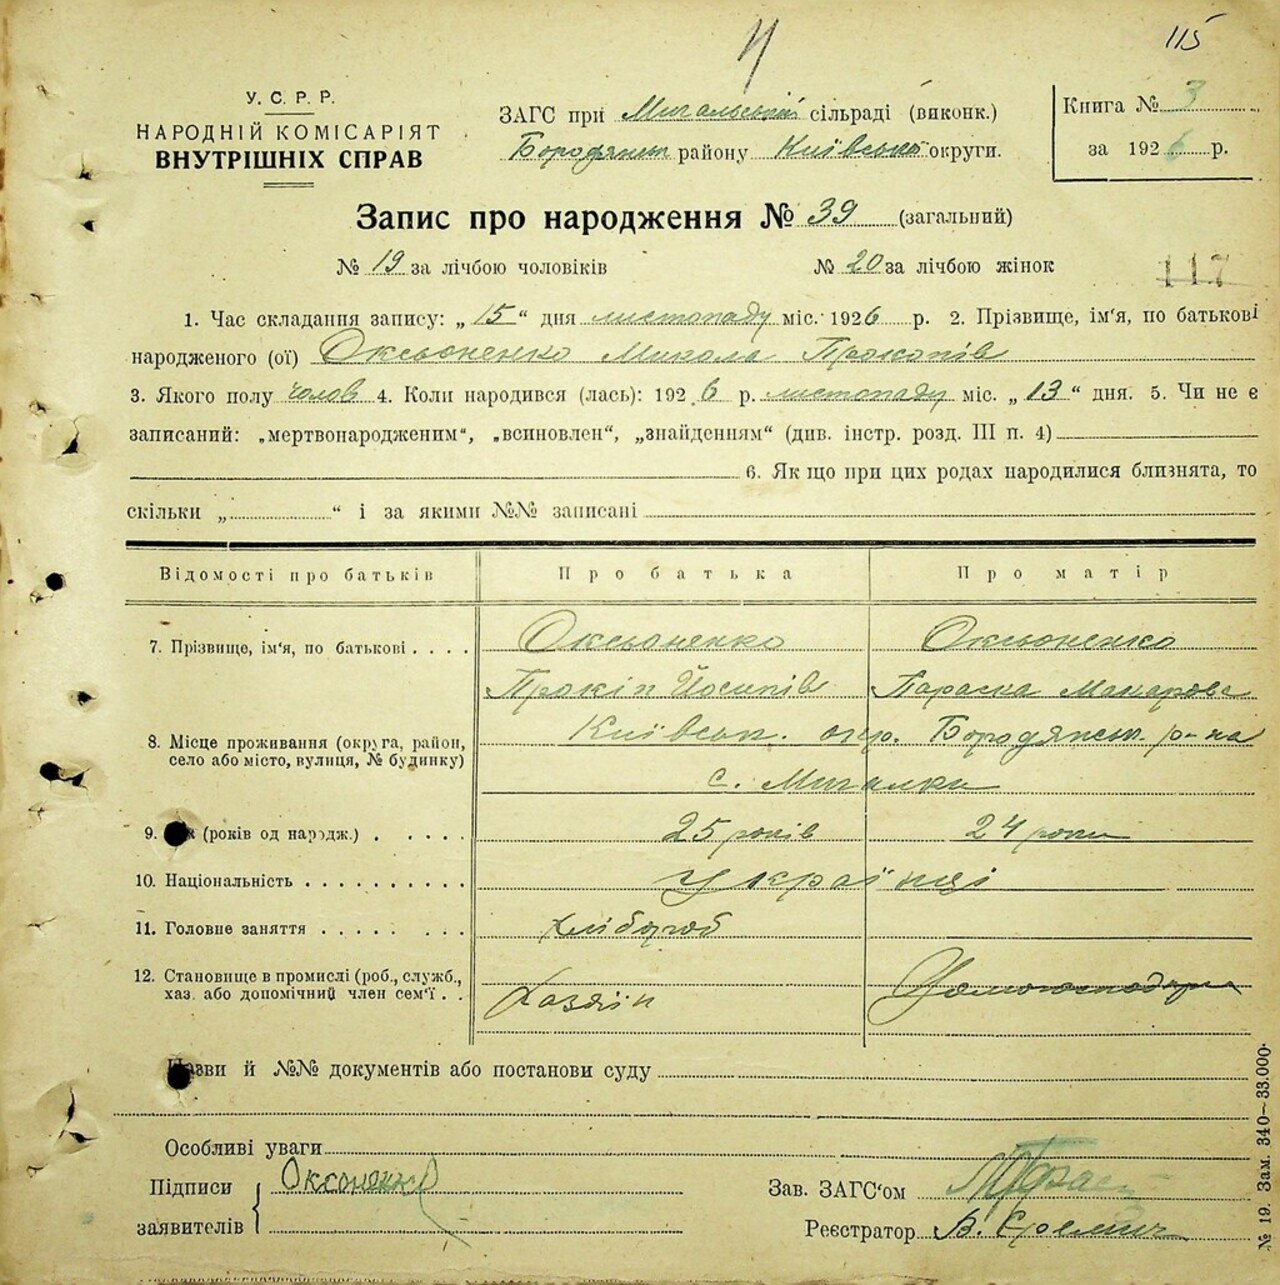 115
У. С. Р. Р.
НАРОДНІЙ КОМІСАРІЯТ
ВНУТРІШНІХ СПРАВ
ЗАГС при Мигальській сільраді (виконк.)
Бородянськ району Київської округи.
Книга № 3
за 1926 р.
Запис про народження № 39 (загальний)
№ 19 за лічбою чоловіків № 20 за лічбою жінок
117
1. Час складання запису: „15“ дня листопаду міс. 1926 р. 2. Прізвище, ім'я, по батькові
народженого (ої) Оксьоненко Микола Прокопів
3. Якого полу чолов 4. Коли народився (лась): 1926 р. листопаду міс. „13“ дня. 5. Чи не є
записаний: „мертвонародженим“, „всиновлен“, „знайденням“ (див. інстр. розд. III п. 4)
6. Як що при цих родах народилися близнята, то
скільки „ “ і за якими №№ записані
Відомості про батьків Про батька Про матір
7. Прізвище, ім'я, по батькові . . . . Оксьоненко Оксьоненко
Прокіп Йосипів Параска Макарова
8. Місце проживання (округа, район, село або місто, вулиця, № будинку) Київськ. окр. Бородянськ. р-на
с. Мигалки
9. (років од народж.) . . . . . 25 років 24 роки
10. Національність . . . . . . . . . . українці
11. Головне заняття . . . . . . . . Хлібороб
12. Становище в промислі (роб., служб.,
хаз. або допомічний член сем'ї . . Хазяїн
Назви й №№ документів або постанови суду
Особливі уваги
Підписи
заявителів
Оксоненко
Зав. ЗАГС'ом
Реєстратор В. Єремич
№ 19. Зам. 340—33.000.